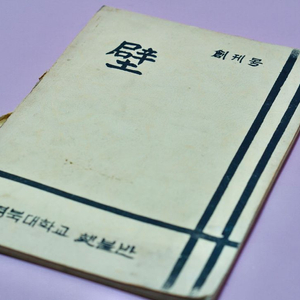 壁
創刊号
경북대학교 횃불반